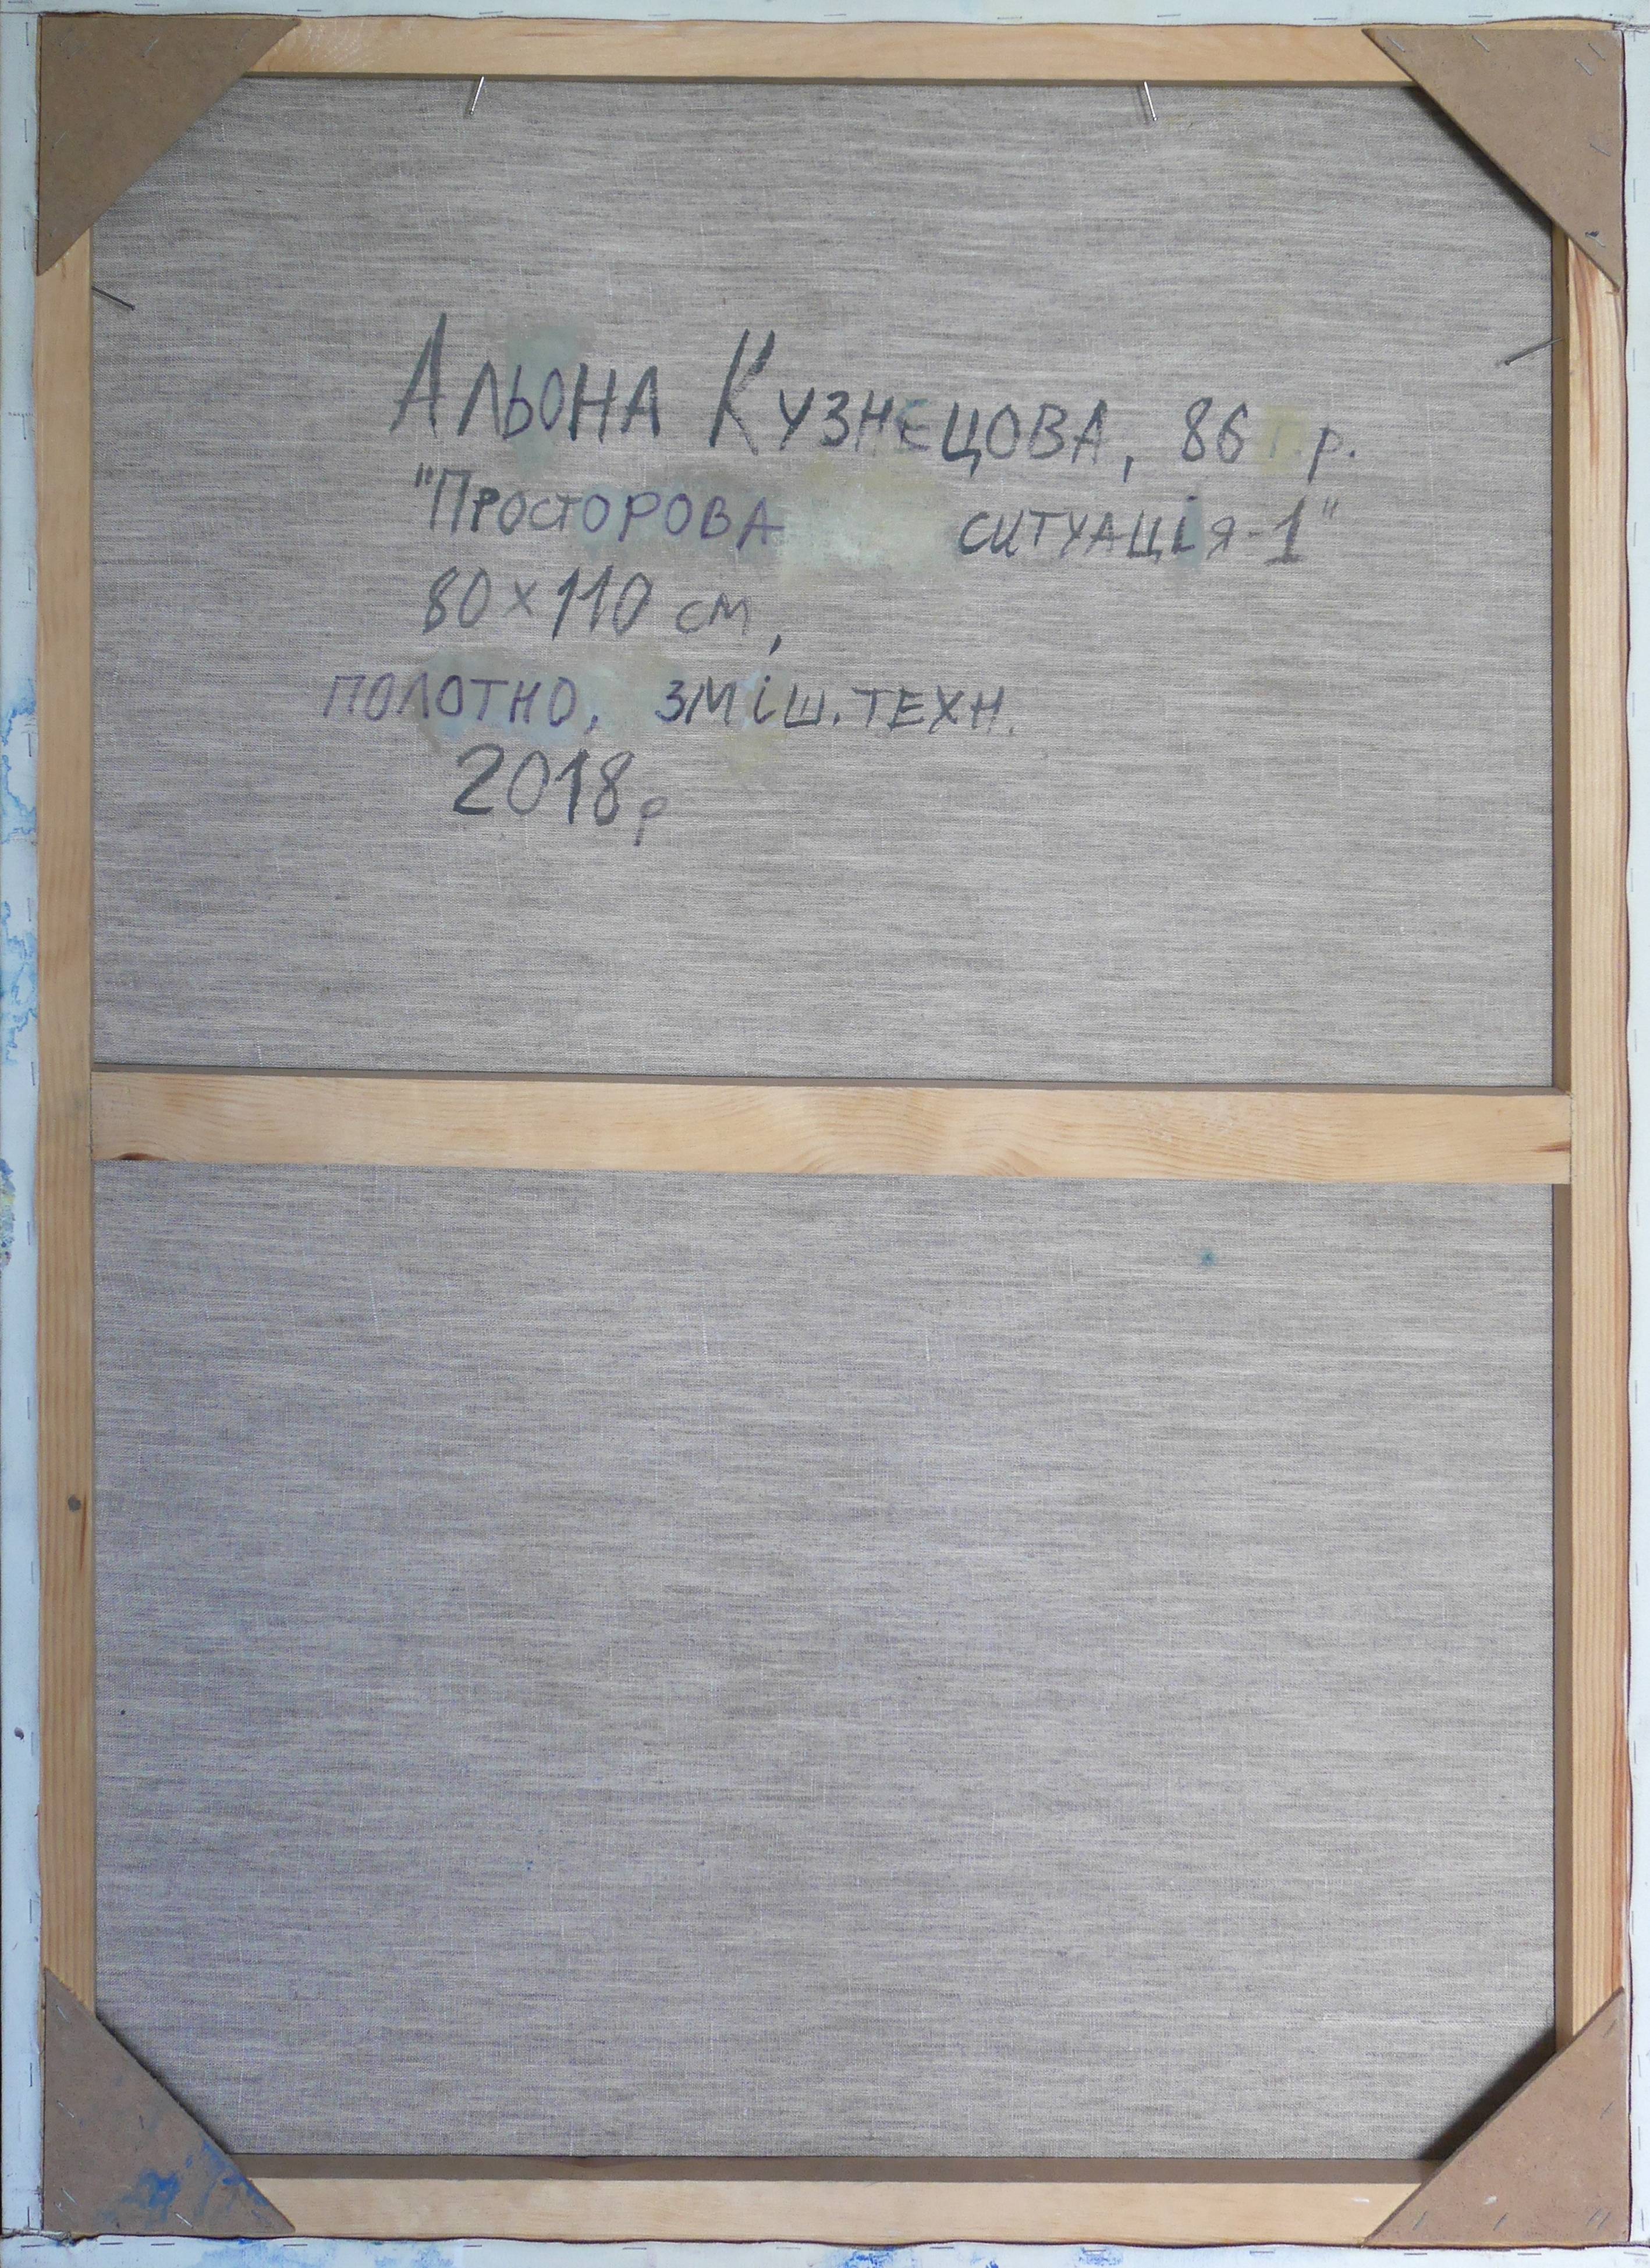 Альона Кузнецова, 86 г.р.
"Просторова ситуація-1"
80×110 см,
полотно, зміш. техн.
2018р